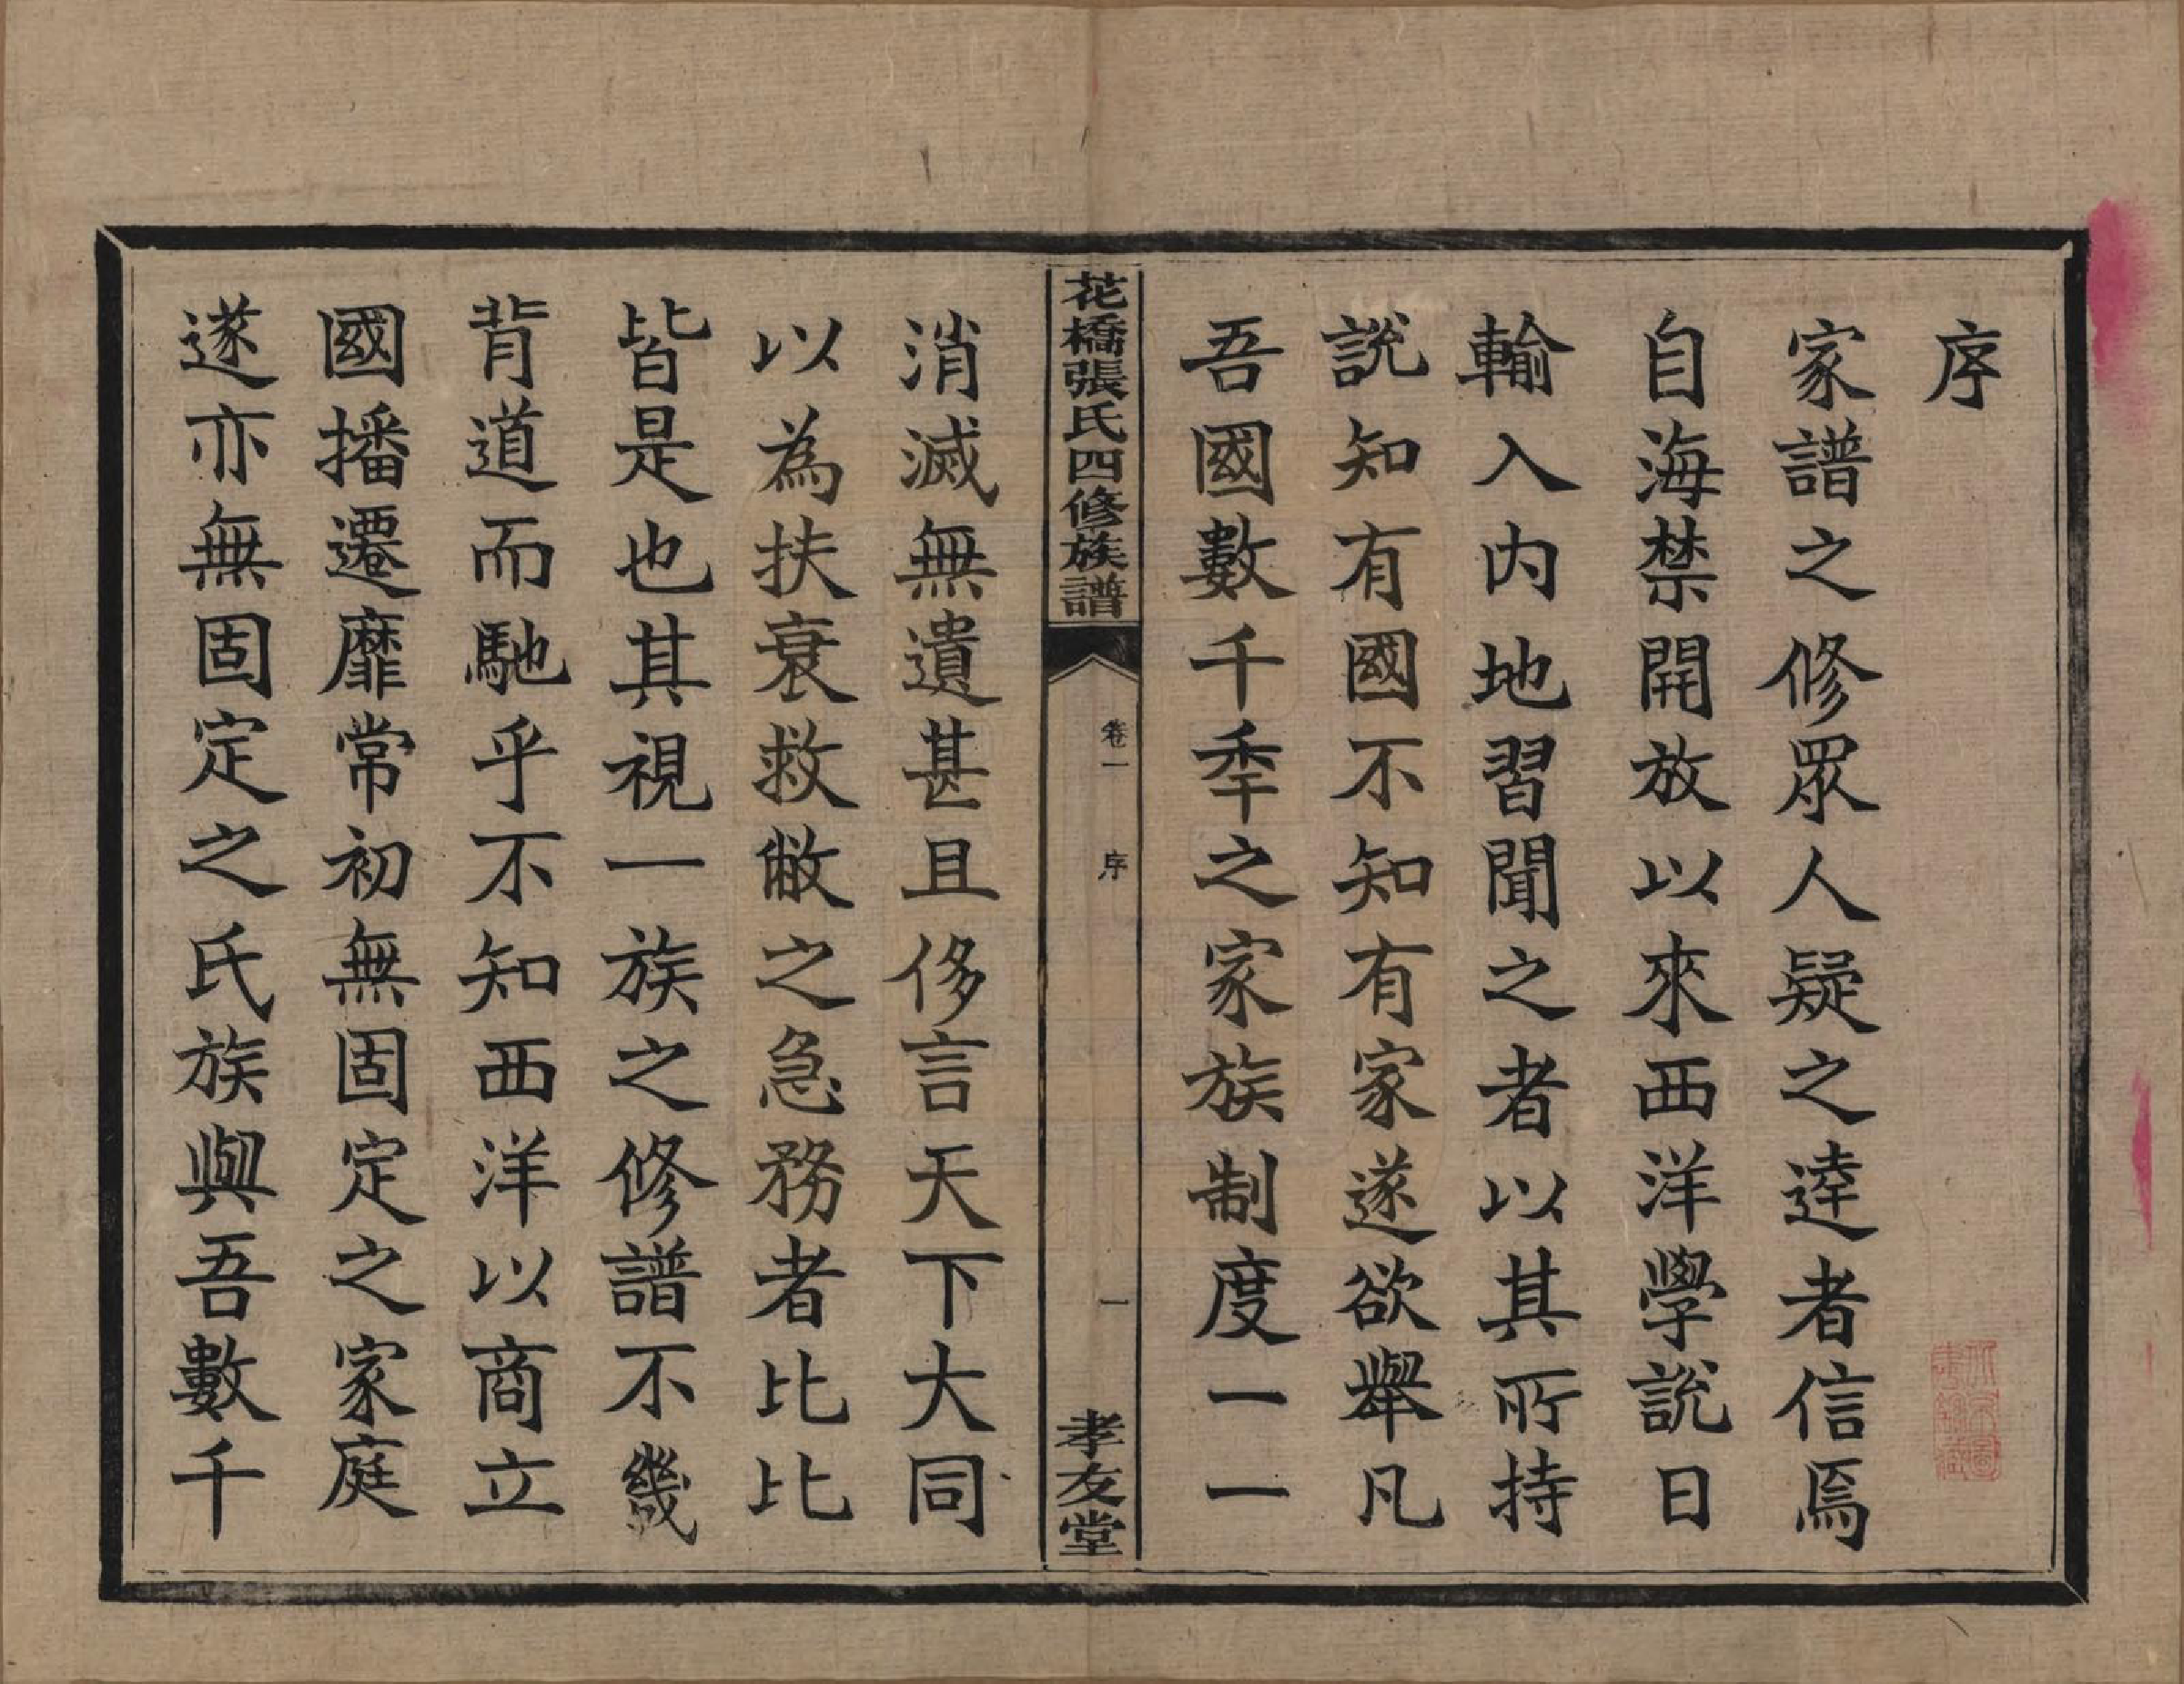 序
家譜之修眾人疑之達者信焉
自海禁開放以來西洋學說日
輸入內地習聞之者以其所持
說知有國不知有家遂欲舉凡
吾國數千秊之家族制度一一
花橋張氏四修族譜
卷一
序
一
孝友堂
消滅無遺甚且侈言天下大同
以為扶衰救敝之急務者比比
皆是也其視一族之修譜不幾
背道而馳乎不知西洋以商立
國播遷靡常初無固定之家庭
遂亦無固定之氏族與吾數千